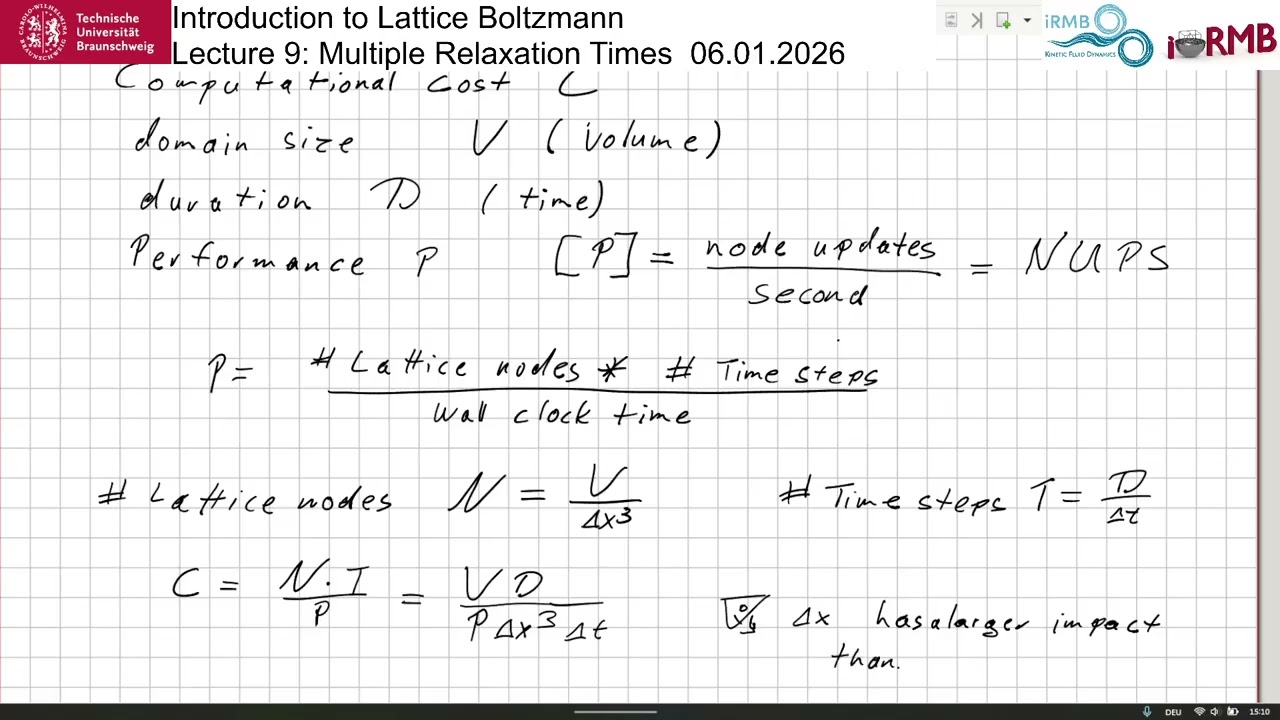 Technische
Universität
Braunschweig
Introduction to Lattice Boltzmann
Lecture 9: Multiple Relaxation Times 06.01.2026
iRMB
KINETIC FLUID DYNAMICS
iRMB
Computational cost C
domain size V (volume)
duration D (time)
Performance P [P] = node updates / second = NUPS
P = # Lattice nodes * # Time steps / Wall clock time
# Lattice nodes N = V / Δx³ # Time steps T = D / Δt
C = N·T / P = V D / P Δx³ Δt Δx has a larger impact
than.
DEU 15:10